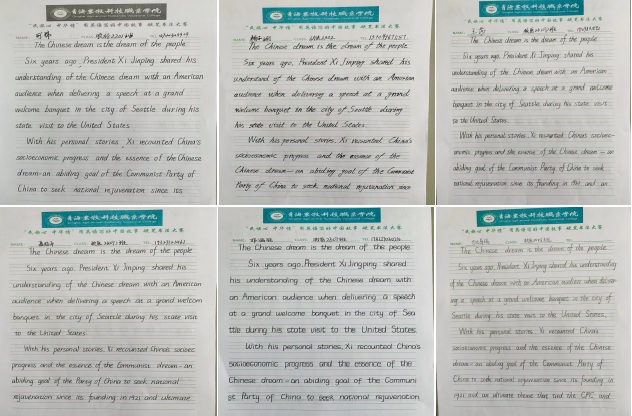 青海农牧科技职业学院
The Chinese dream is the dream of the people
Six years ago, President Xi Jinping shared his
understanding of the Chinese dream with an American
audience when delivering a speech at a grand
welcome banquet in the city of Seattle during his
state visit to the United States.
With his personal stories, Xi recounted China's
socioeconomic progress and the essence of the Chinese
dream-an abiding goal of the Communist Party of
China to seek national rejuvenation since its
青海农牧科技职业学院
The Chinese dream is the dream of the people
Six years ago, President Xi Jinping shared his
understand of the Chinese dream with an American
audience when delivering a speech at a grand
welcome banquet in the city of Seattle during
his state visit to the United States.
With his personal stories, Xi recounted China's
socioeconomic progress and the essence of the
Chinese dream-an abiding goal of the Communist
Party of China to seek national rejuvenation since
青海农牧科技职业学院
The Chinese dream is the dream of the people
Six years ago, President Xi Jinping shared his
understanding of the Chinese dream with an American
audience when delivering a speech at a grand welcome
banquet in the city of Seattle during his state visit
to the United States.
With his personal stories, Xi recounted China's socioeco-
nomic progress and the essence of the Chinese dream-an
abiding goal of the Communist Party of China to seek
national rejuvenation since its founding in 1921 and an
青海农牧科技职业学院
The Chinese dream is the dream of the people
Six years ago, President Xi Jinping shared his
understanding of the Chinese dream with an American
audience when delivering a speech at a grand welcom
banquet in the city of Seattle during his state visit
to the United States.
With his personal stories, Xi recounted China's socioec
progress and the essence of the Communist dream-an
abiding goal of the Party of China to seek national
rejuvenation since its founding in 1921 and ultimate
青海农牧科技职业学院
The Chinese dream is the dream of the people
Six years ago, President Xi Jingping shared
his understanding of the Chinese dream with
an American audience when delivering a speech
at a grand welcome banquet in the city of Sea
ttle during his state visit to the United States.
With his personal stories, Xi recounted China's
socioeconomic progress and the essence of the
Chinese dream-an abiding goal of the Communi
st Party of China to seek national rejuvenation
青海农牧科技职业学院
The Chinese dream is the dream of the people
Six years ago, President Xi Jinping shared his understanding
of the Chinese dream with an American audience when deliver-
ing a speech at a grand welcome banquet in the city of
Seattle during his state visit to the United States.
With his personal stories, Xi recounted China's
socioeconomic progress and the essence of the Chinese
dream-an abiding goal of the Communist Party of
China to seek national rejuvenation since its founding in
1921 and an ultimate dream that the CPC and